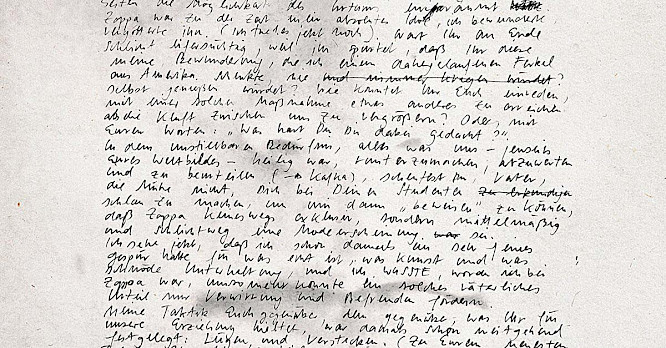 Seiten die Möglichkeit des Irrtums eingeräumt
Zappa war zu der Zeit mein absoluter Idol, ich bewunderte,
vergötterte ihn. (Im tiefes jetzt noch). Wart Ihr am Ende
schlicht eifersüchtig, weil Ihr spürtet, daß Ihr diese
meine Bewunderung, die ich einem dahergelaufenen Ferkel
aus Amerika nie und nimmer kriegen würdet?
selbst genießen würdet? Wie konntet Ihr Euch einreden,
mit einer solchen Maßnahme etwas anderes zu erreichen
als die Kluft zwischen uns zu vergrößern? Oder, mit
Euren Worten: „Was hast Du Dir dabei gedacht?"
In dem unstillbaren Bedürfnis, alles was uns – jenseits
Eures Weltbildes – heilig war, runterzumachen, abzuwerten
und zu beurteilen (→ Kafka), scheutest Du, Vater,
die Mühe nicht, Dich bei Deinen Studenten zu erkundigen
schlau zu machen, um mir dann „beweisen" zu können,
daß Zappa keineswegs exklusiv, sondern mittelmäßig
und schlichtweg eine Modeerscheinung war sei.
Ich sehe jetzt, daß ich schon damals ein sehr feines
Gespür hatte für was echt ist, was Kunst und was
schnöde Unterhaltung, und ich WUSSTE, woran ich bei
Zappa war, umsomehr konnte ein solches väterliches
Urteil nur Verwirrung und Befremden fördern.
Meine Taktik Euch gegenüber, dem gegenüber, was Ihr für
unsere Erziehung hieltet, war damals schon weitgehend
festgelegt: Lügen, und Verstecken. (Zu Euren neuesten